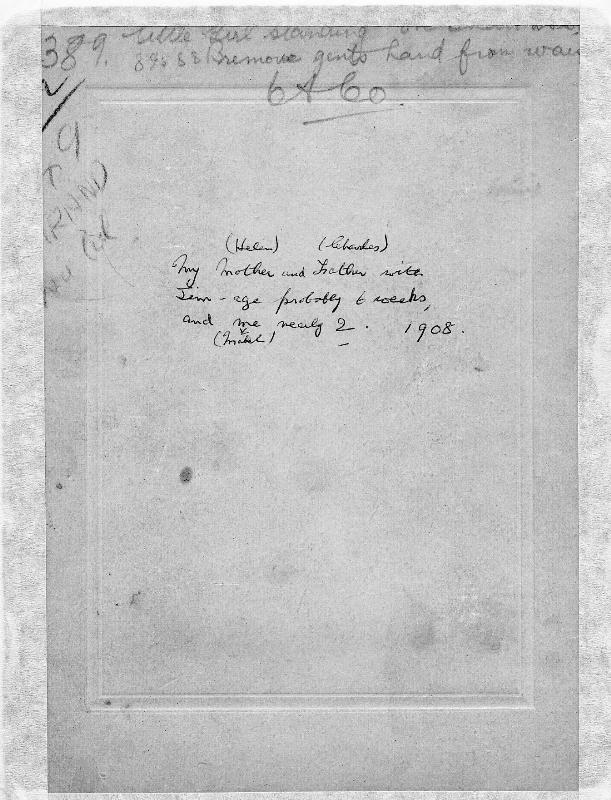 389. Little Girl standing on
remove gents hand from
6 & Co
9
(Helen) (Charles)
My Mother and Father with
Jim - age probably 6 weeks,
and me nearly 2. 1908.
(Mabel)